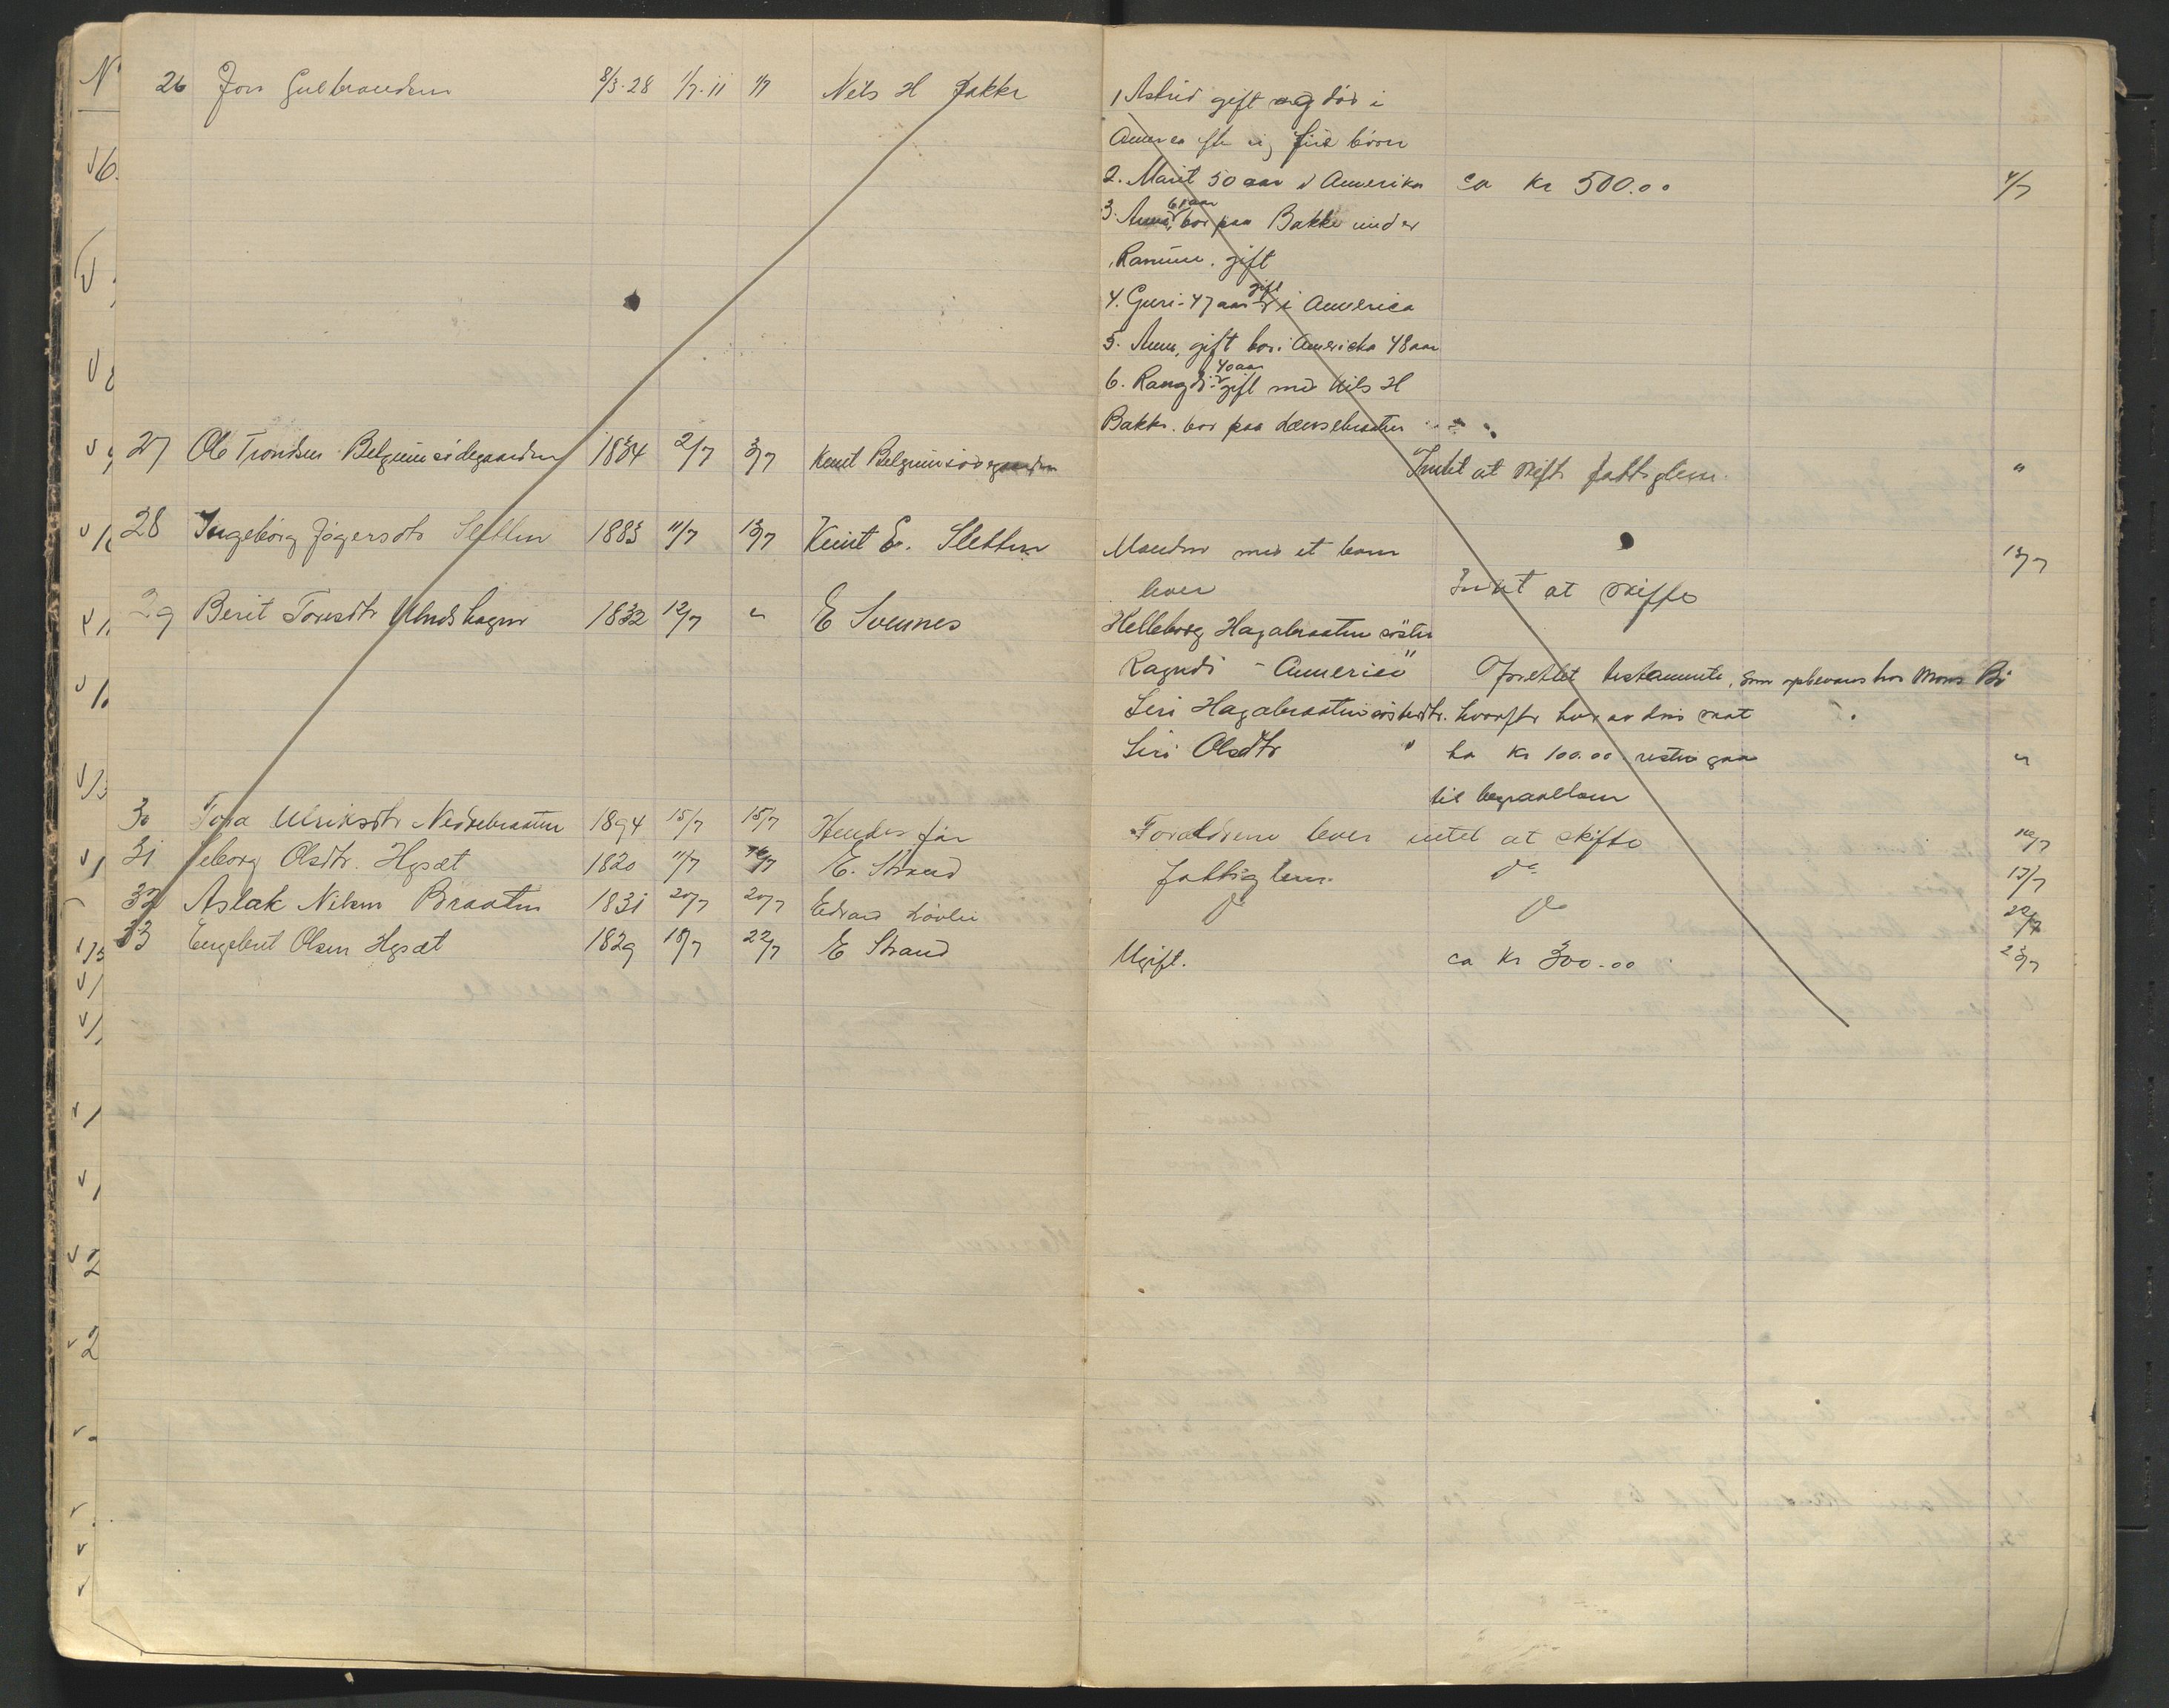 26 Jon Gulbrandsen 8/3-28 1/7-11 1/7 Nils H Bakke
1 Astrid gift og død i
America efter sig fire børn
2. Marit 50 aar i Amerika ca Kr 500.00 4/7
3. Anna 61 aar bor paa Bakke under
Ranum. gift
4. Guri - 47 aar gift i America
5. Anne, gift bor i Amerika 48 aar
6. Rangdi 40 aar gift med Nils H
Bakke. bor paa
27 Ole Trondsen Belgumseidegaarden 1834 2/7 3/7 Knut
Intet at skifte fattiglem. "
28 Ingebørg Jøgersdtr Sletten 1883 11/7 13/7 Knut E. Sletten Manden med et barn 13/7
lever Intet at skifte
29 Berit Toresdtr 1832 12/7 " E Svennes Helleborg Hagabraaten søster
Ragndi - America " Oprettet testamente, som opbevares hos Mons Bø
Siri Hagabraaten søsterdtr. hvorefter hver av dem skal
Siri Olsdtr " ha Kr 100.00 resten gaa "
til
30 Tora Ulriksdtr Nedrebraaten 1894 15/7 15/7 Hendes far Forældrene lever intet at skifte 16/7
31 Olsdtr. Hgsæt 1820 11/7 16/7 E. Strand Fattiglem. do 17/7
32 Aslak Nilsen Braaten 1831 20/7 20/7 Edvard Løvlie do do 22/7
33 Engebret Olsen Hgsæt 1829 18/7 22/7 E Strand Ugift. ca Kr 300-00 23/7